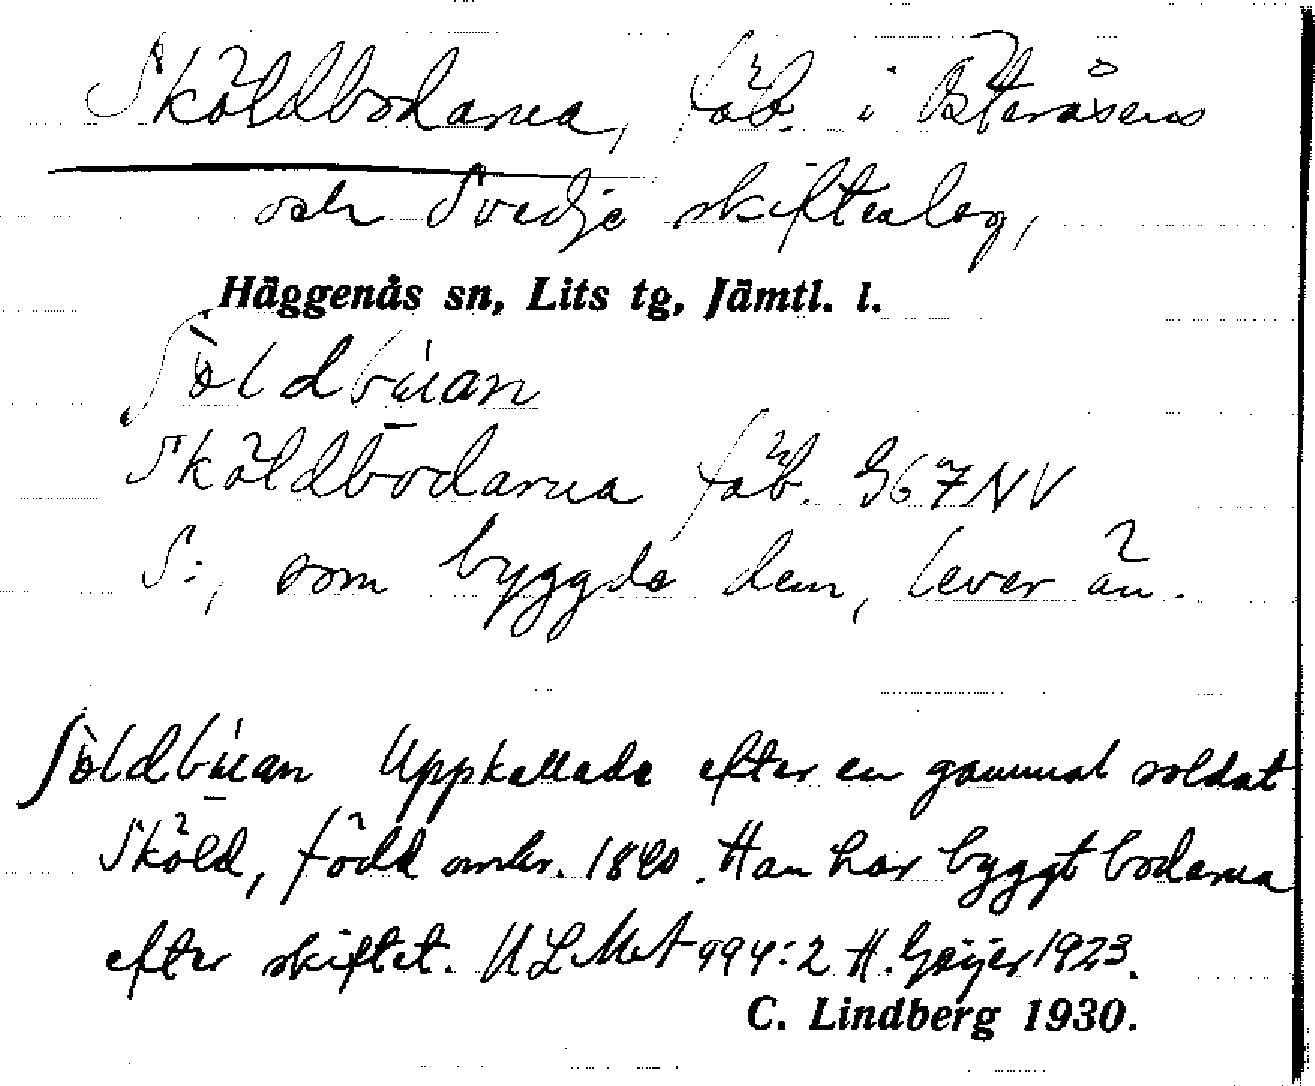 Sköldbodarna, fäb. i Österåsens
och Svedje skifteslag,
Häggenås sn, Lits tg, Jämtl. l.
ʃö̀ldbúan
Sköldbodarna fäb. G67NV
S:, som byggde dem, lever än.
ʃö̀ldbúan Uppkallade efter en gammal soldat
Sköld, född omkr. 1840. Han har byggt bodarna
efter skiftet. ULMA 994:2 H. Geijer 1923.
C. Lindberg 1930.